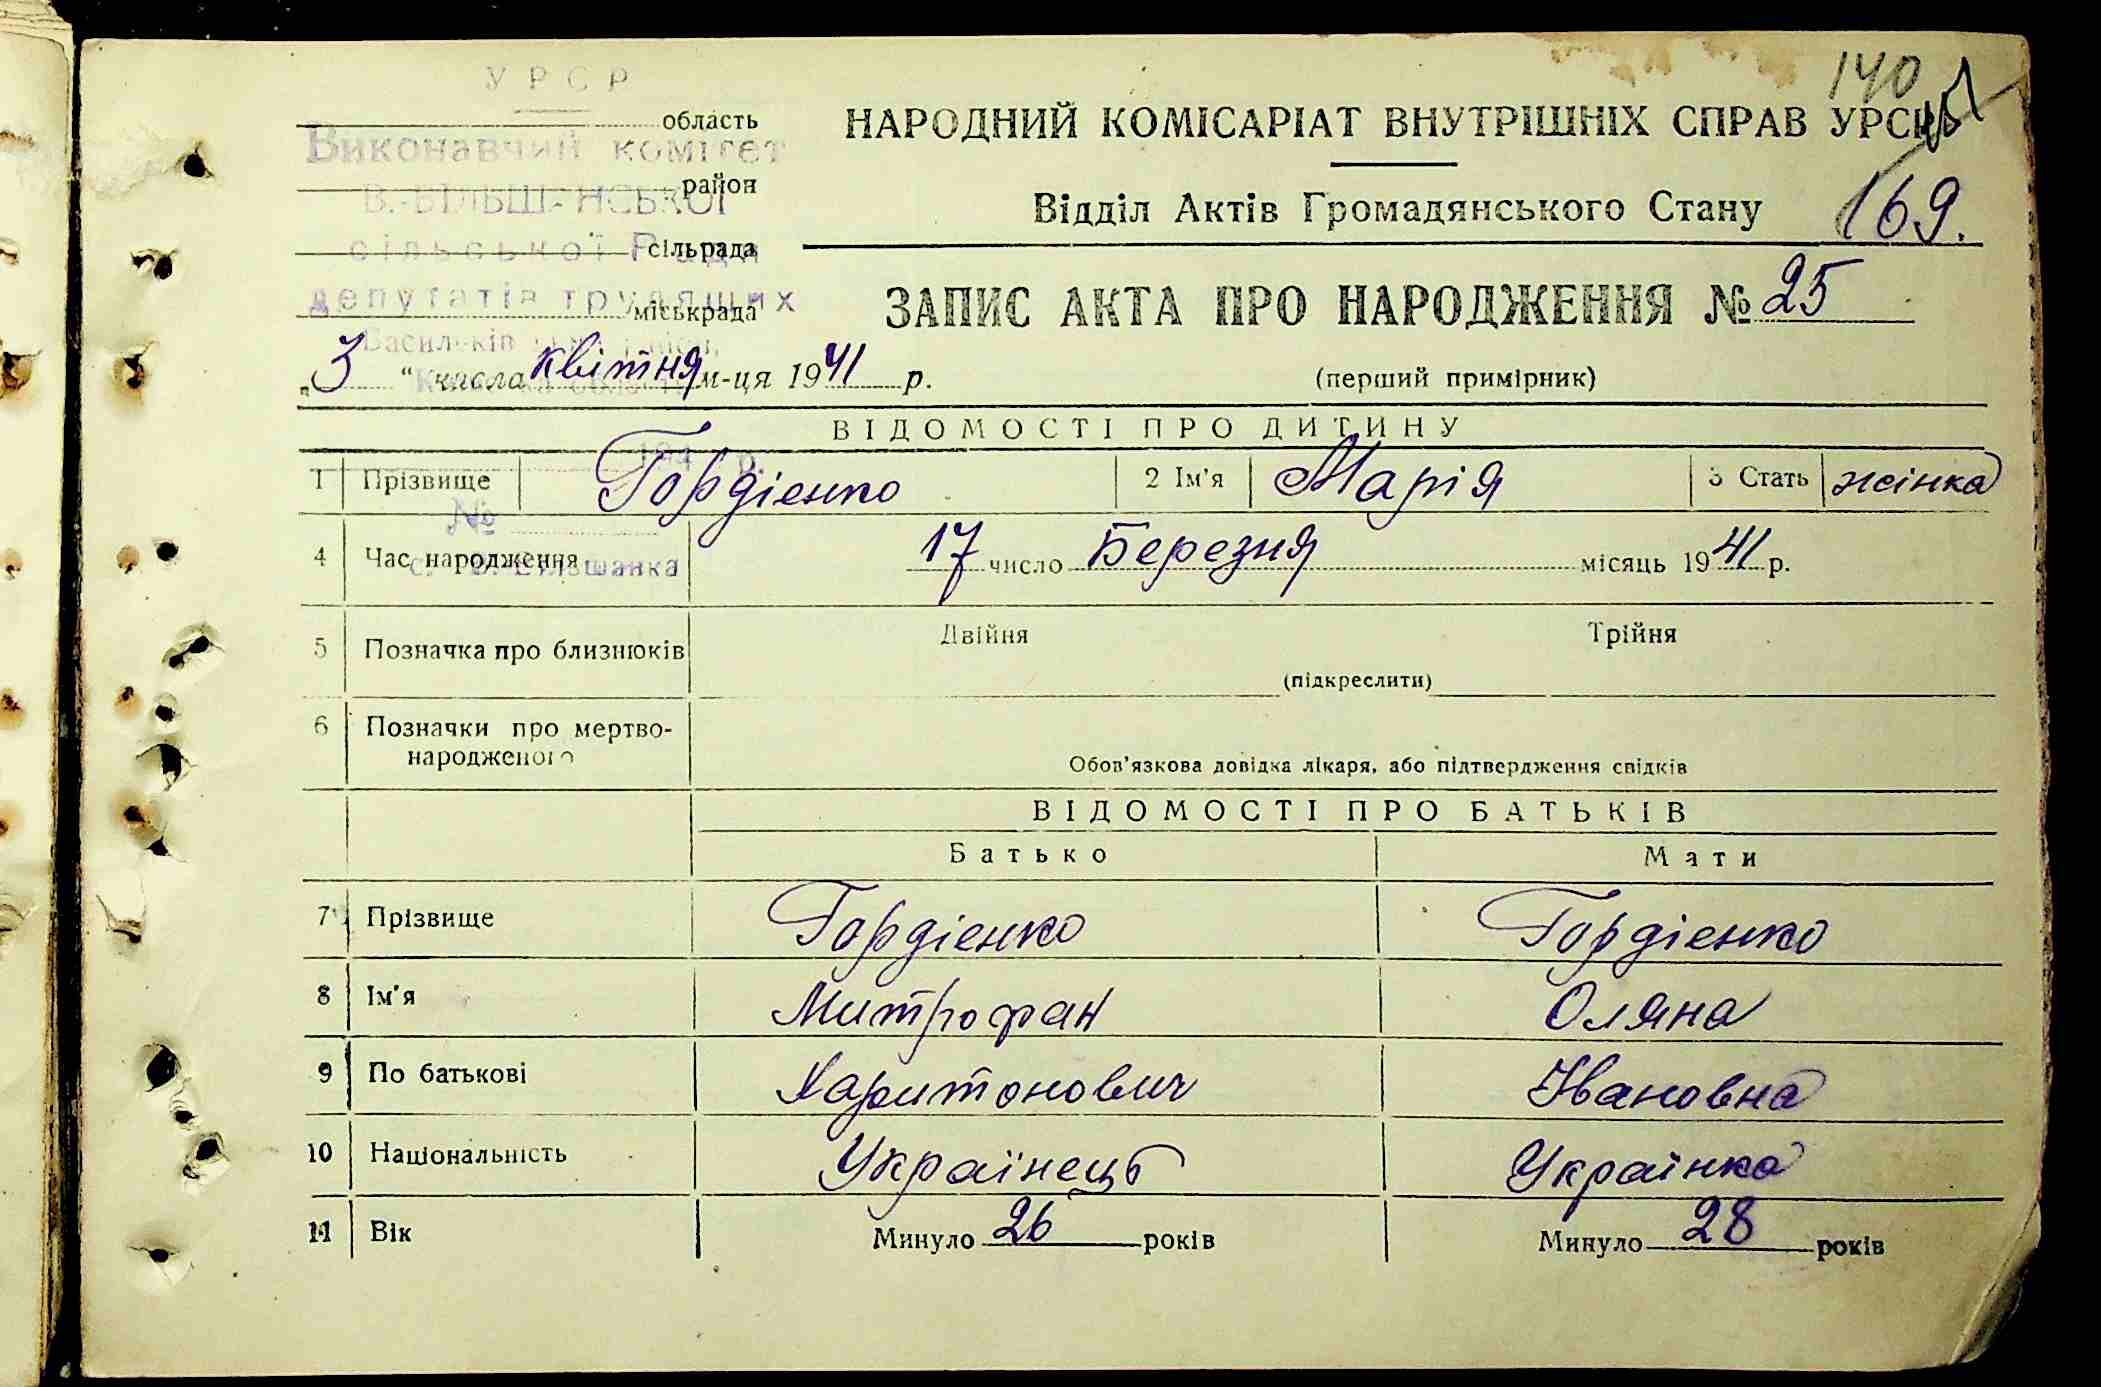 140
УРСР
область
НАРОДНИЙ КОМІСАРІАТ ВНУТРІШНІХ СПРАВ УРСР
Виконавчий комітет
район
В.-БІЛЬШАНСЬКОЇ
Відділ Актів Громадянського Стану 169.
сільрада
сільської Ради
депутатів трудящих
міськрада
ЗАПИС АКТА ПРО НАРОДЖЕННЯ № 25
„3“ числа квітня м-ця 1941 р.
(перший примірник)
ВІДОМОСТІ ПРО ДИТИНУ
1 Прізвище Гордієнко 2 Ім'я Марія 3 Стать жінка
№
4 Час народження 17 число Березня місяць 1941 р.
с. В. Більшанка
5 Позначка про близнюків Двійня Трійня
(підкреслити)
6 Позначки про мертво-
народженого
Обов'язкова довідка лікаря, або підтвердження свідків
ВІДОМОСТІ ПРО БАТЬКІВ
Батько Мати
7 Прізвище Гордієнко Гордієнко
8 Ім'я Митрофан Оляна
9 По батькові Харитонович Івановна
10 Національність Українець Українка
11 Вік Минуло 26 років Минуло 28 років